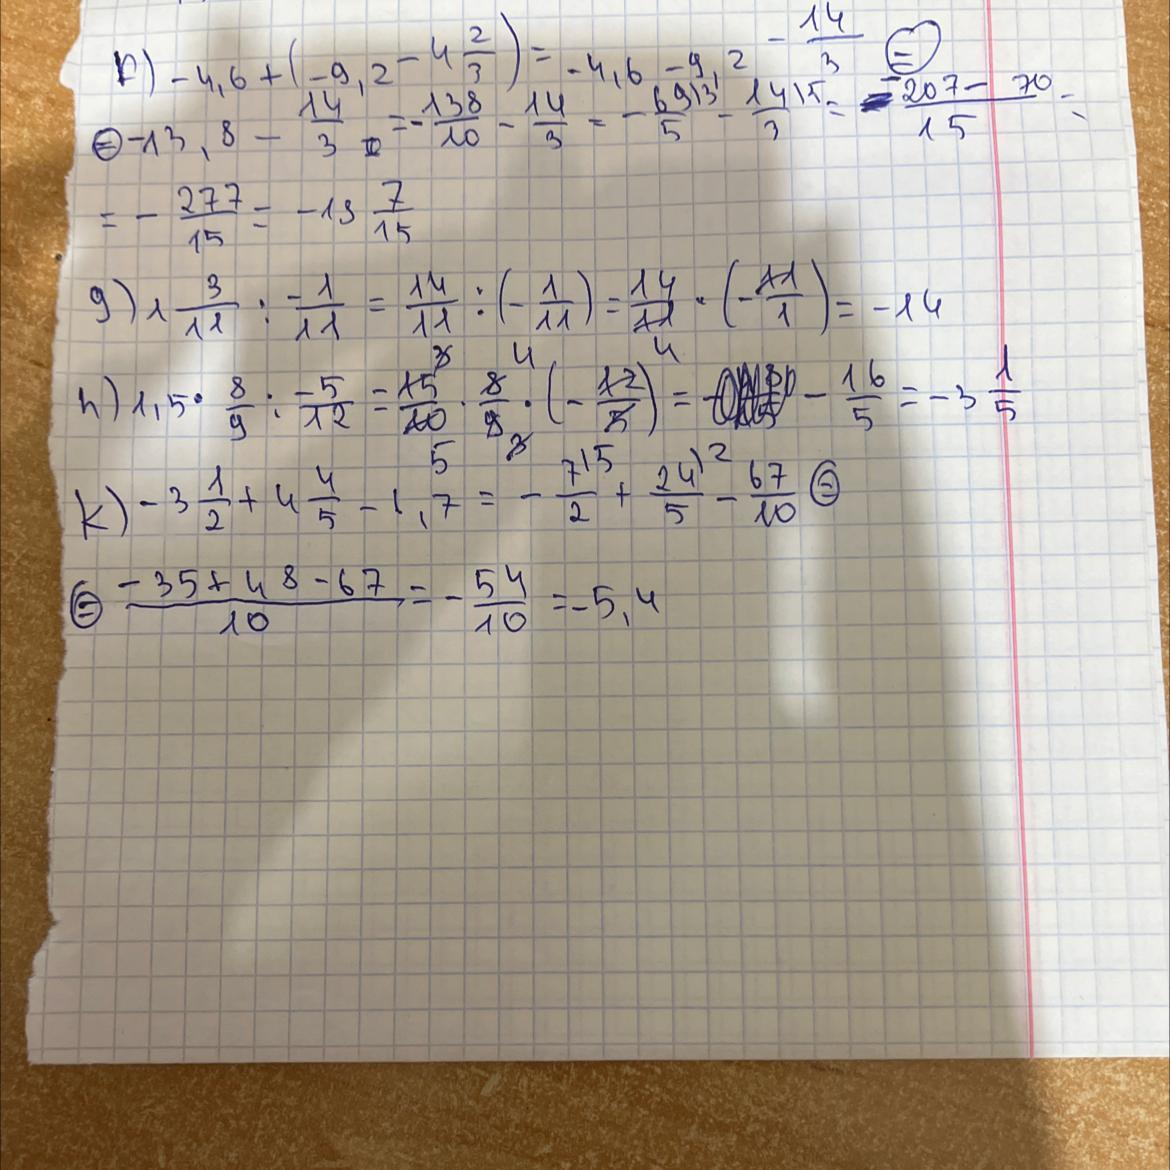 f) -4,6 + (-9,2 - 4 2/3) = -4,6 - 9,2 - 14/3 ⊜
⊜ -13,8 - 14/3 = -138/10 - 14/3 = - 69\3/5 - 14\5/3 = -207-70/15 =
= - 277/15 = -19 7/15
g) 1 3/11 : -1/11 = 14/11 : (-1/11) = 14/11 · (-11/1) = -14
h) 1,5 · 8/9 : -5/12 = 15/10 · 8/9 · (-12/5) = - 16/5 = -3 1/5
k) -3 1/2 + 4 4/5 - 1,7 = - 7\5/2 + 24\2/5 - 67/10 ⊜
⊜ -35+48-67/10 = - 54/10 = -5,4